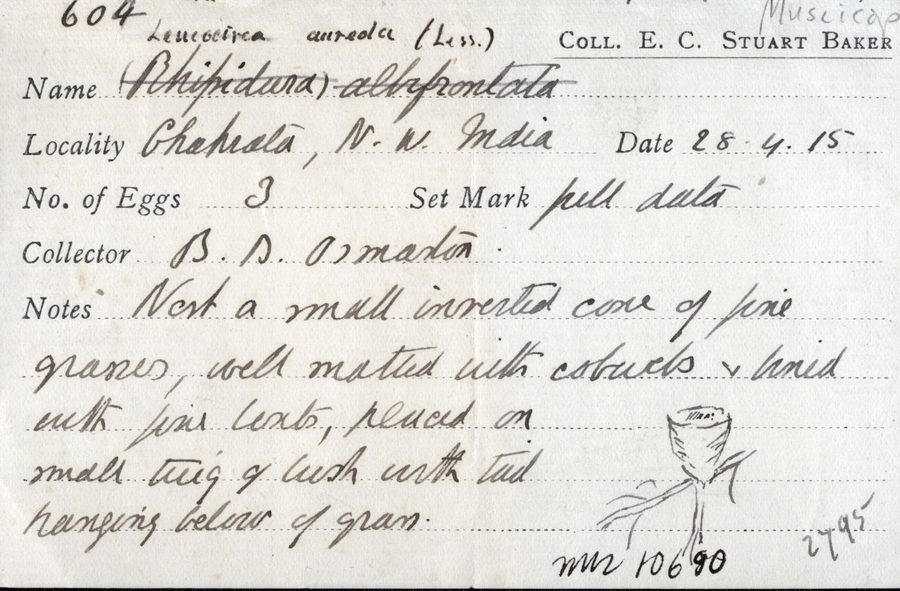 604
Muscicap
Leucocirca aureola (Less.)
COLL. E. C. STUART BAKER
Name (Rhipidura) albifrontata
Locality Chakrata, N. W. India Date 28. 4. 15
No. of Eggs 3 Set Mark pell data
Collector B. B. Osmaston.
Notes Nest a small inverted cone of fine
grasses, well matted with cobwebs & lined
with fine bents, placed on
small twig of bush with tail
hanging below of grass.
2795
10690